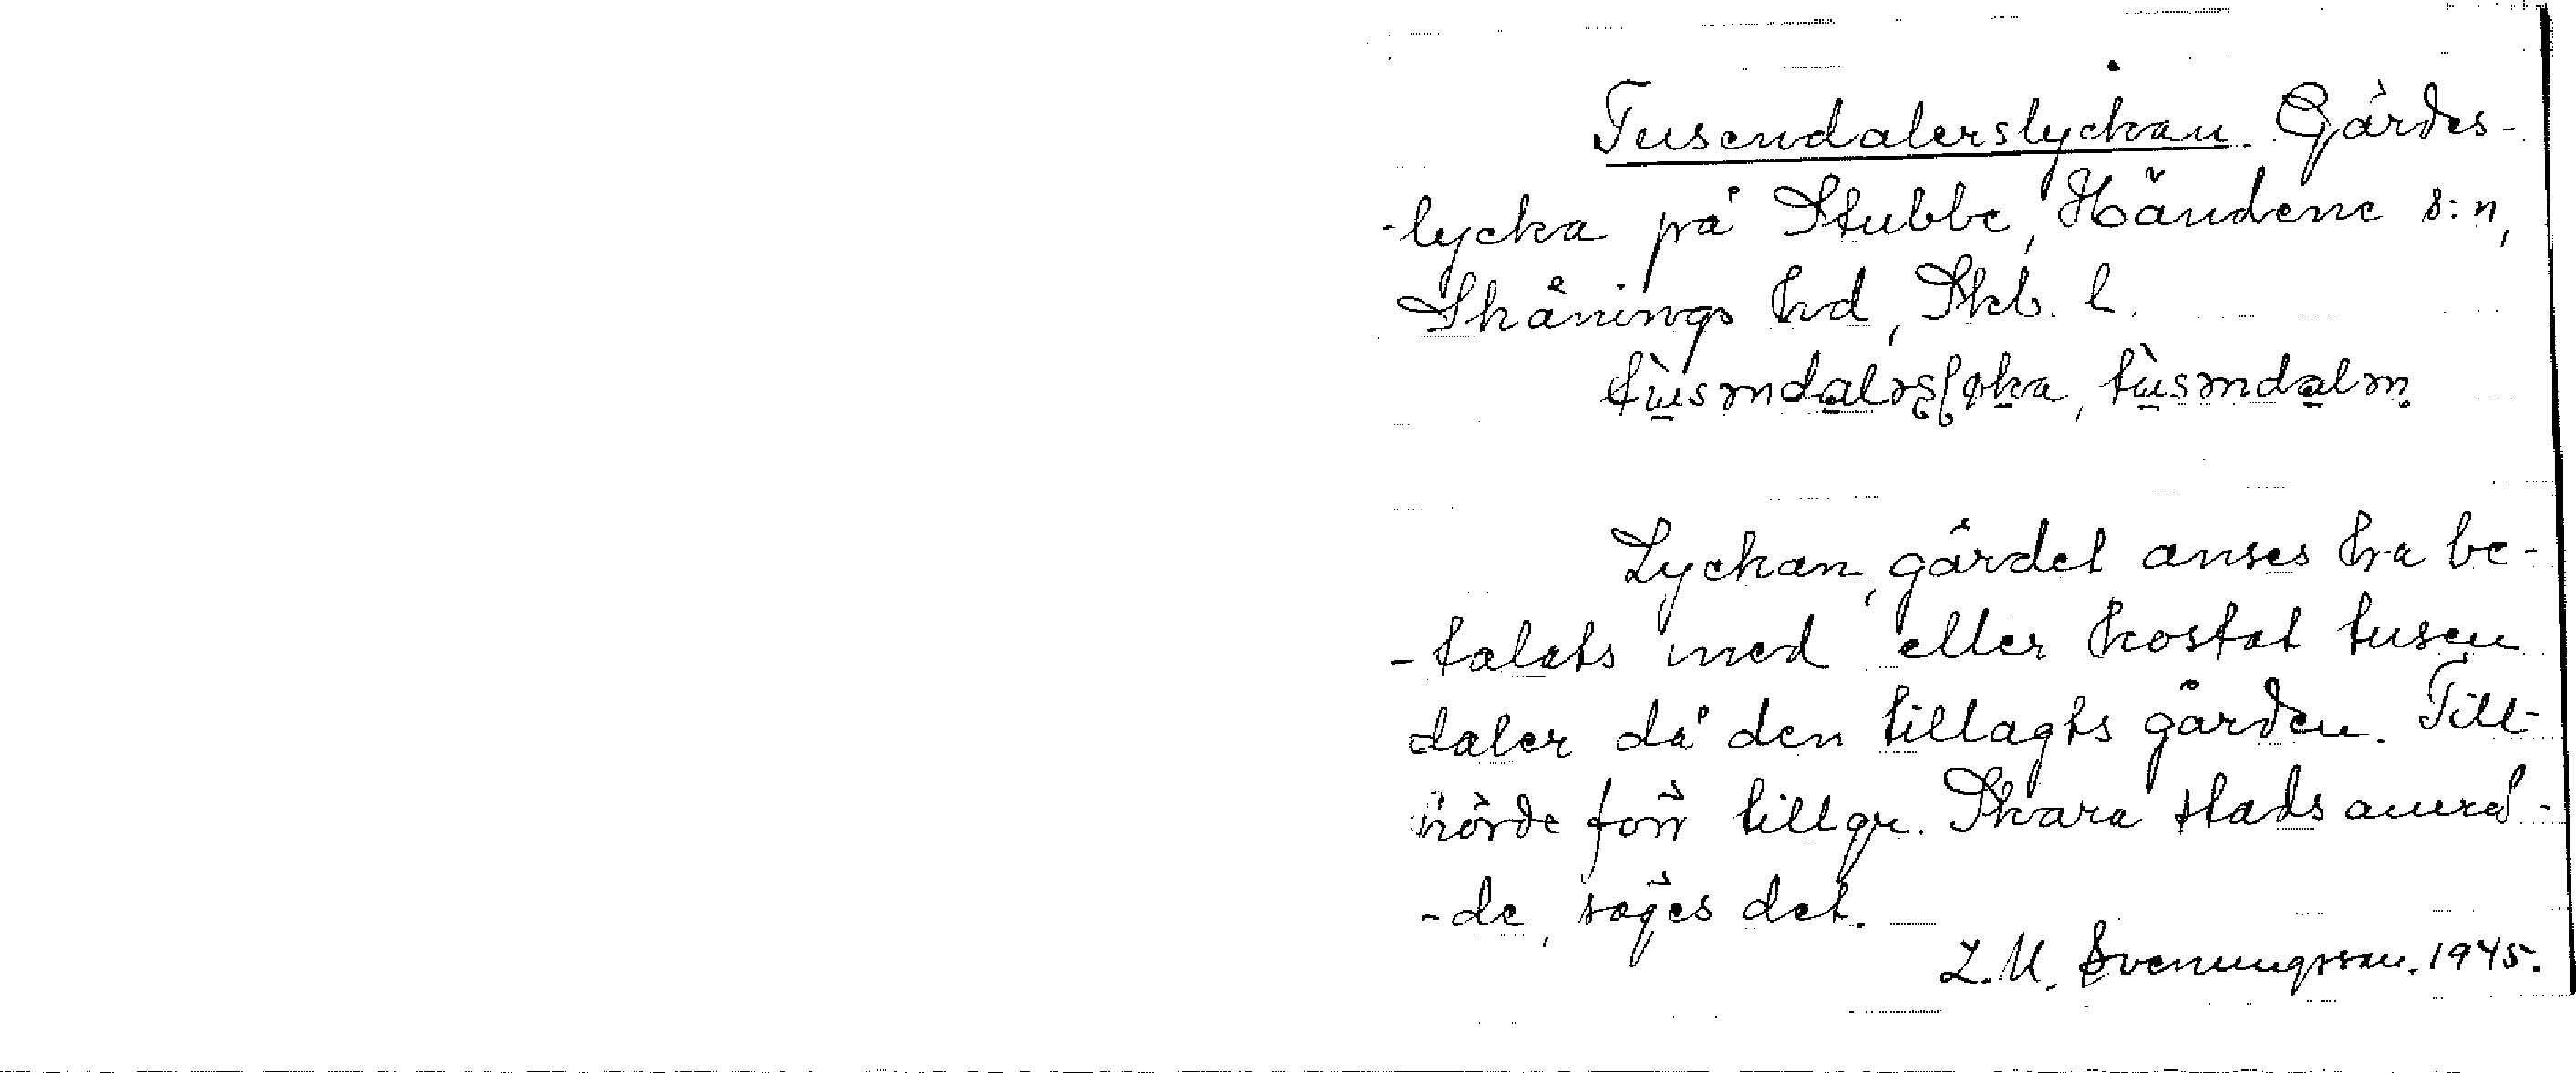 Tusendalerslyckan. Gärdes-
-lycka på Stubbe, Händene s:n,
Skånings hd, Skb. l.
Lyckan, gärdet anses ha be-
-talats med eller kostat tusen
daler då den tillagts gården. Till-
hörde förr tillgr. Skara stadsområ-
-de, säges det. —
L. M. Svenungsson. 1945.